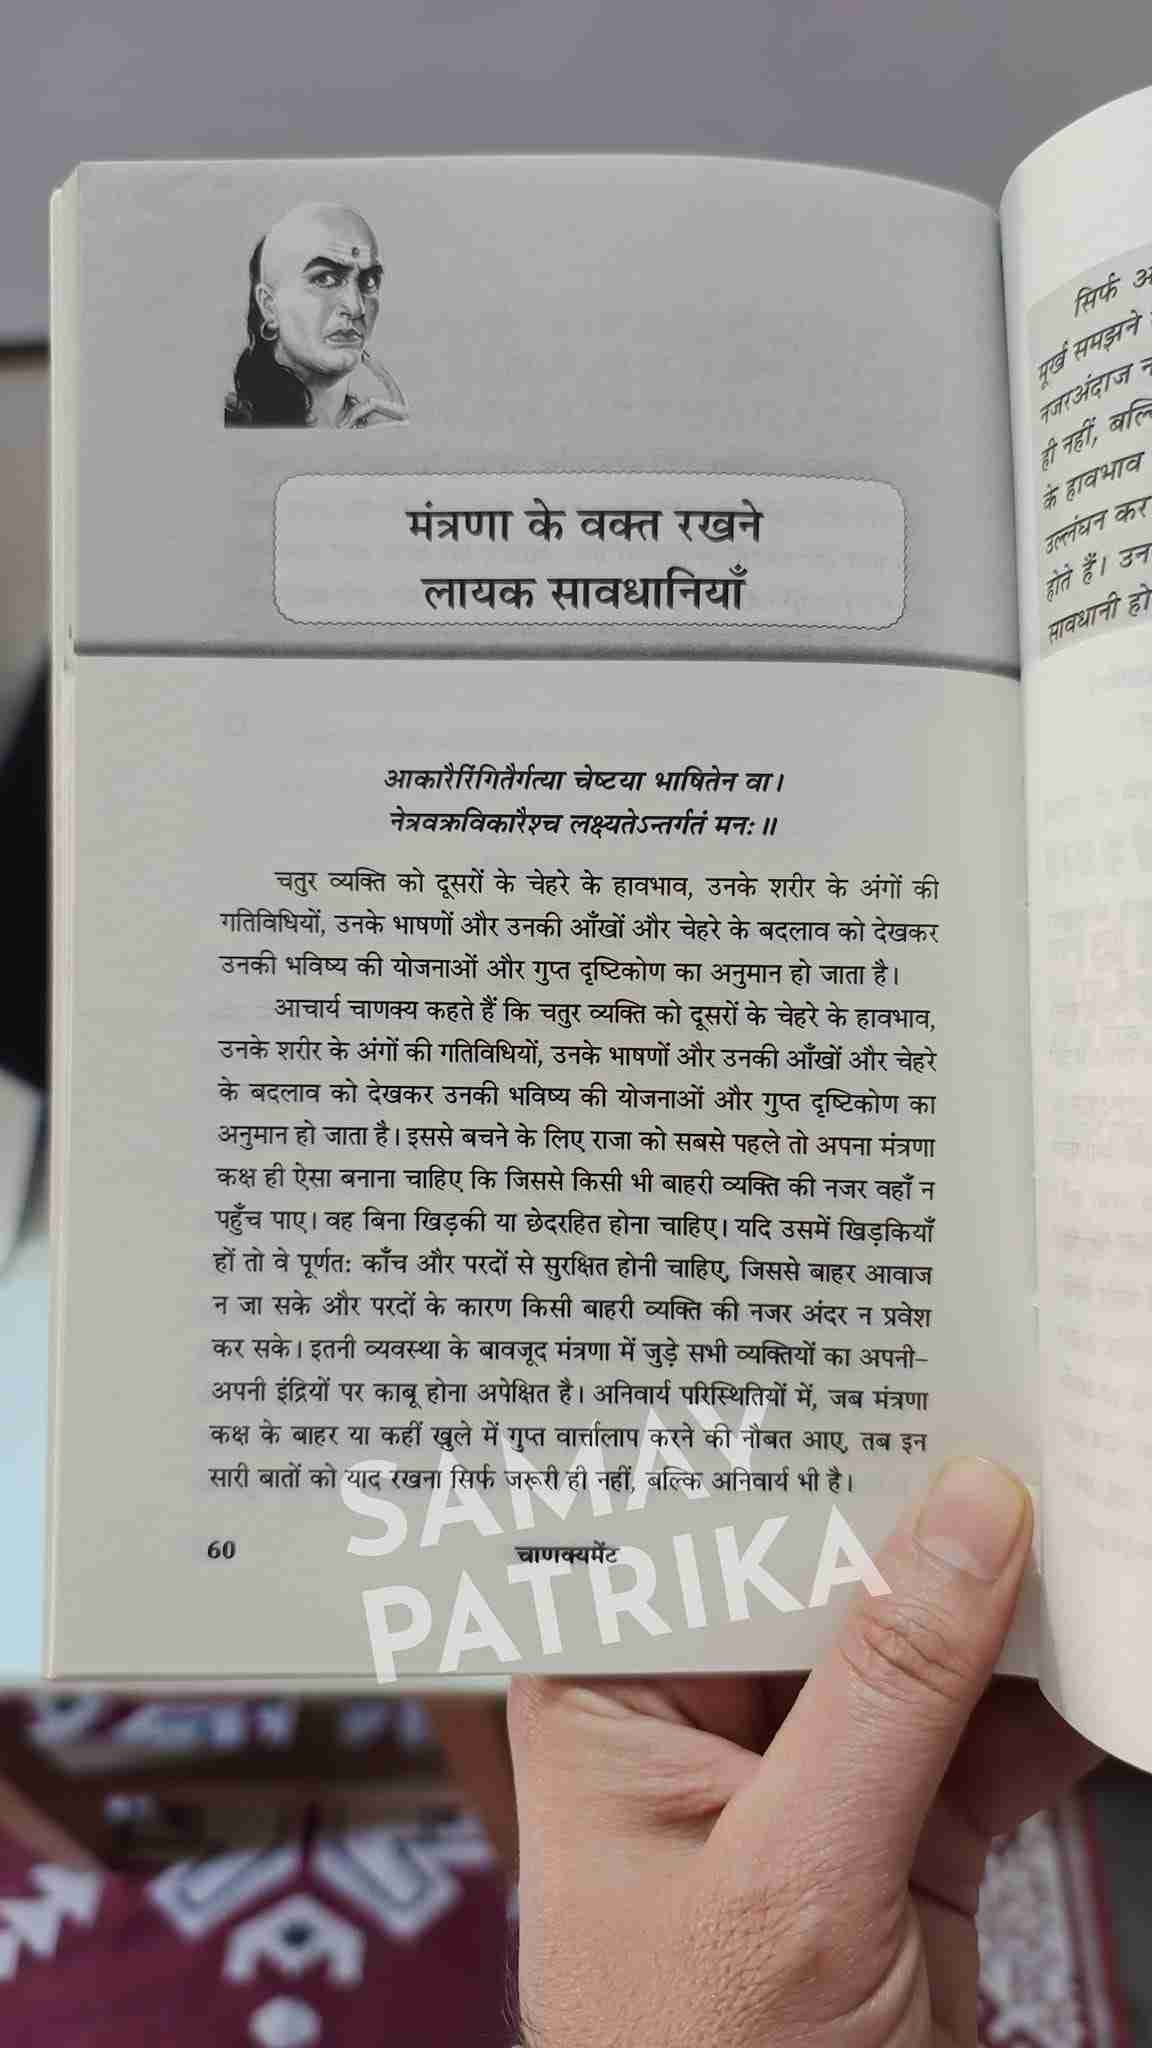 मंत्रणा के वक्त रखने
लायक सावधानियाँ
आकारैरिंगितैर्गत्या चेष्टया भाषितेन वा।
नेत्रवक्रविकारैश्च लक्ष्यतेऽन्तर्गतं मनः॥
चतुर व्यक्ति को दूसरों के चेहरे के हावभाव, उनके शरीर के अंगों की
गतिविधियों, उनके भाषणों और उनकी आँखों और चेहरे के बदलाव को देखकर
उनकी भविष्य की योजनाओं और गुप्त दृष्टिकोण का अनुमान हो जाता है।
आचार्य चाणक्य कहते हैं कि चतुर व्यक्ति को दूसरों के चेहरे के हावभाव,
उनके शरीर के अंगों की गतिविधियों, उनके भाषणों और उनकी आँखों और चेहरे
के बदलाव को देखकर उनकी भविष्य की योजनाओं और गुप्त दृष्टिकोण का
अनुमान हो जाता है। इससे बचने के लिए राजा को सबसे पहले तो अपना मंत्रणा
कक्ष ही ऐसा बनाना चाहिए कि जिससे किसी भी बाहरी व्यक्ति की नजर वहाँ न
पहुँच पाए। वह बिना खिड़की या छेदरहित होना चाहिए। यदि उसमें खिड़कियाँ
हों तो वे पूर्णतः काँच और परदों से सुरक्षित होनी चाहिए, जिससे बाहर आवाज
न जा सके और परदों के कारण किसी बाहरी व्यक्ति की नजर अंदर न प्रवेश
कर सके। इतनी व्यवस्था के बावजूद मंत्रणा में जुड़े सभी व्यक्तियों का अपनी-
अपनी इंद्रियों पर काबू होना अपेक्षित है। अनिवार्य परिस्थितियों में, जब मंत्रणा
कक्ष के बाहर या कहीं खुले में गुप्त वार्त्तालाप करने की नौबत आए, तब इन
सारी बातों को याद रखना सिर्फ जरूरी ही नहीं, बल्कि अनिवार्य भी है।
60 चाणक्यमेंट
SAMAY
PATRIKA
सिर्फ
मूर्ख समझने
नजरअंदाज
ही नहीं,
के हावभाव
उल्लंघन कर
होते हैं। उन
सावधानी हो